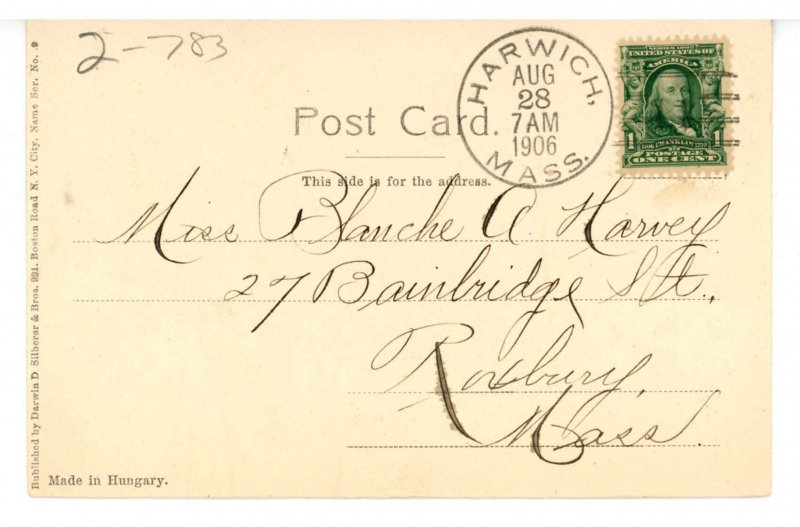 2-783
HARWICH,
AUG
28
7AM
1906
MASS.
SERIES 1902
UNITED STATES OF
AMERICA
1 1
1706 FRANKLIN 1790
POSTAGE
ONE CENT
Post Card.
This side is for the address.
Miss Blanche A. Harvey
27 Bainbridge St.,
Roxbury,
Mass.
Published by Darwin D. Silberer & Bros. 991. Boston Road N. Y. City. Name Ser. No. 9
Made in Hungary.